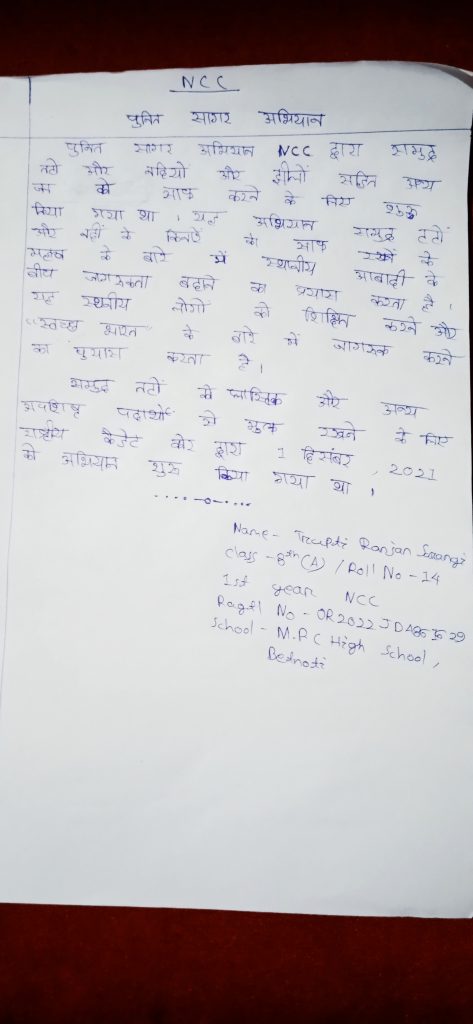 NCC
पुनित सागर अभियान
पुनित सागर अभियान NCC द्वारा समुद्र
तटों और नदियों और झीलों सहित अन्य
जल को साफ करने के लिए शुरू
किया गया था । यह अभियान समुद्र तटों
और नदी के किनारे को साफ रखने के
महत्व के बारे में स्थानीय आबादी के
बीच जागरुकता बढ़ाने का प्रयास करता है ।
यह स्थनीय लोगों को शिक्षित करने और
"स्वच्छ भारत" के बारे में जागरुक करने
का प्रयास करता है ।
समुद्र तटों को प्लास्टिक और अन्य
अपशिष्ट पदार्थों से मुक्त रखने के लिए
राष्ट्रीय कैडेट कोर द्वारा 1 दिसंबर, 2021
को अभियान शुरू किया गया था ।
Name - Trupti Ranjan
Class - 8th (A) / Roll No - 14
1st year NCC
No - OR2022JDA
School - M.P.C High School,
Bednoti